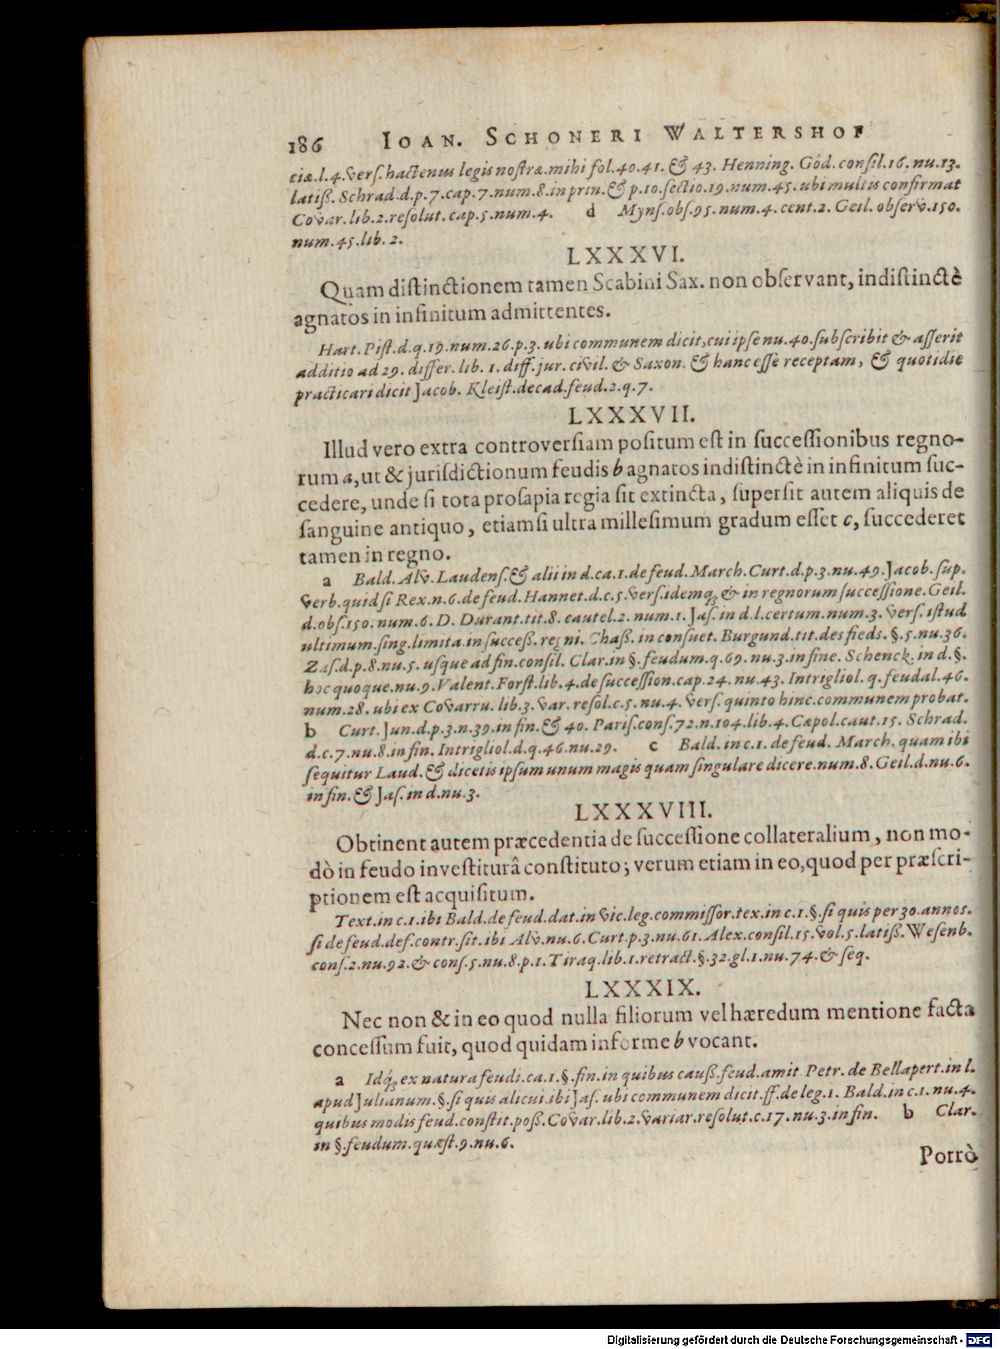 186 IOAN. SCHONERI WALTERSHOF
ciæ.l.4.vers.hactenus legis nostræ.mihi fol.40.41.& 43. Henning. Göd.consil.16.nu.13.
latiß. Schrad.d.p.7.cap.7.num.8.in prin.& p.10.sectio.19.num.45.ubi multis confirmat
Covar.lib.2.resolut.cap.5.num.4. d Myns.obs.95.num.4.cent.2. Geil.observ.150.
num.45.lib.2.
LXXXVI.
Quam distinctionem tamen Scabini Sax. non observant, indistinctè
agnatos in infinitum admittentes.
Hart.Pist.d.q.19.num.26.p.3.ubi communem dicit,cui ipse nu.40.subscribit & asserit
additio ad 29. differ. lib. 1. diff.jur. civil. & Saxon. & hanc esse receptam, & quotidie
practicari dicit Jacob. Kleist.decad.feud.2.q.7.
LXXXVII.
Illud vero extra controversiam positum est in successionibus regno-
rum a,ut & jurisdictionum feudis b agnatos indistinctè in infinitum suc-
cedere, unde si tota prosapia regia sit extincta, supersit autem aliquis de
sanguine antiquo, etiamsi ultra millesimum gradum esset c, succederet
tamen in regno.
a Bald. Alv. Laudens.& alii in d.ca.1.de feud.March.Curt.d.p.3.nu.49.Jacob.sup.
verb.quid si Rex.n.6.de feud.Hannet.d.c.5.vers.idemq; & in regnorum successione.Geil.
d.obs.150.num.6.D. Durant.tit.8. cautel.2. num.1. Jas.in d.l.certum.num.3. vers. istud
ultimum.sing.limita.in success. regni. Chaß. in consuet. Burgund.tit.des fieds. §.5.nu.36.
Zas.d.p.8.nu.5. usque ad fin.consil. Clar.in §.feudum.q.69.nu.3.in fine. Schenck. in d.§.
hoc quoque.nu.9.Valent.Forst.lib.4.de succession.cap.24.nu.43. Intrigliol.q.feudal.46.
num.28.ubi ex Covarru.lib.3.var.resol.c.5.nu.4.vers.quinto hinc.communem probat.
b Curt. Jun.d.p.3.n.39.in fin.& 40. Paris.cons.72.n.104.lib.4.Cæpol.caut.15. Schrad.
d.c.7.nu.8.in fin. Intrigliol.d.q.46.nu.29. c Bald. in c.1. de feud. March. quam ibi
sequitur Laud.& dicetis ipsum unum magis quam singulare dicere.num.8. Geil.d.nu.6.
in fin.& Jas.in d.nu.3.
LXXXVIII.
Obtinent autem præcedentia de successione collateralium, non mo-
dò in feudo investiturâ constituto; verum etiam in eo,quod per præscri-
ptionem est acquisitum.
Text.in c.1.ibi Bald.de feud.dat.in vic.leg.commissor.tex.in c.1.§.si quis per 30.annos.
si de feud.def.contr.sit.ibi Alv.nu.6.Curt.p.3.nu.61.Alex.consil.15.vol.5.latiß.Wesenb.
cons.2.nu.92.& cons.5.nu.8.p.1.Tiraq.lib.1.retract.§.32.gl.1.nu.74.& seq.
LXXXIX.
Nec non & in eo quod nulla filiorum vel hæredum mentione facta
concessum fuit, quod quidam informe b vocant.
a Idq; ex natura feudi.ca.1.§.fin.in quibus cauß.feud.amit. Petr. de Bellapert.in l.
apud Julianum.§.si quis alicui.ibi Jas. ubi communem dicit.ff.de leg.1. Bald.in c.1.nu.4.
quibus modis feud.constit.poß. Covar.lib.2.variar.resolut.c.17.nu.3.in fin. b Clar.
in §.feudum.quæst.9.nu.6.
Porrò
Digitalisierung gefördert durch die Deutsche Forschungsgemeinschaft - DFG